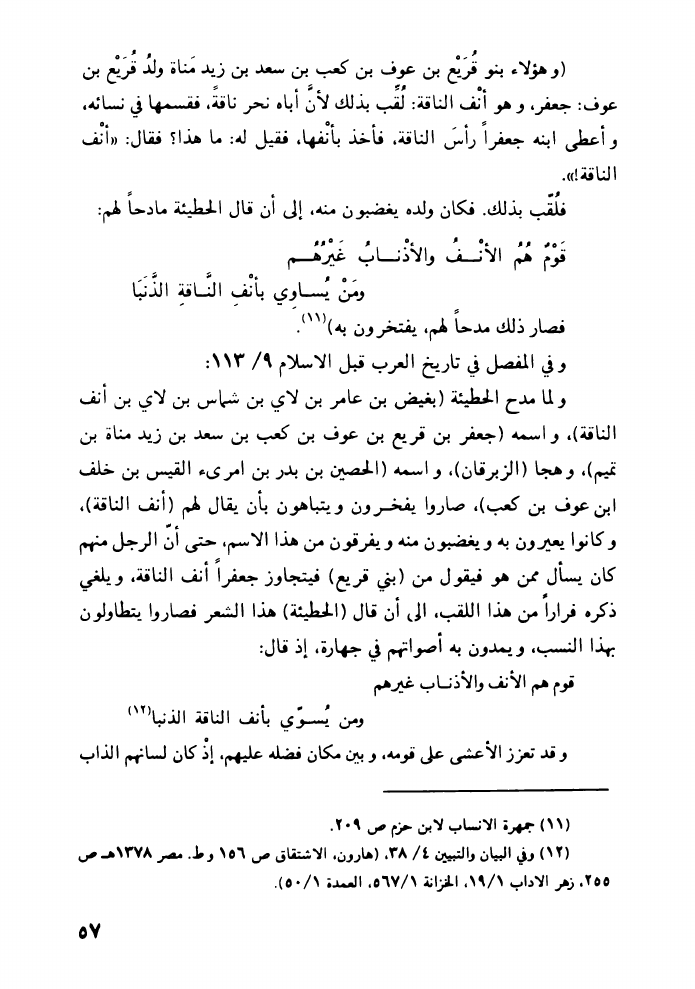 (وهؤلاء بنو قُرَيْع بن عوف بن كعب بن سعد بن زيد مَناة ولدُ قُرَيْع بن
عوف: جعفر، وهو أنْف الناقة: لُقِّب بذلك لأنَّ أباه نحر ناقةً، فقسمها في نسائه،
وأعطى ابنه جعفراً رأسَ الناقة، فأخذ بأنْفها، فقيل له: ما هذا؟ فقال: «أنْف
الناقة!».
فلُقّب بذلك. فكان ولده يغضبون منه، إلى أن قال الحطيئة مادحاً لهم:
قَوْمٌ هُمُ الأنْــفُ والأذْنــابُ غَيْرُهُــم
ومَنْ يُســاوِي بأنْفِ النَّـاقةِ الذَّنَبَا
فصار ذلك مدحاً لهم، يفتخرون به)(١١).
وفي المفصل في تاريخ العرب قبل الاسلام ٩/ ١١٣:
ولما مدح الحطيئة (بغيض بن عامر بن لاي بن شماس بن لاي بن أنف
الناقة)، واسمه (جعفر بن قريع بن عوف بن كعب بن سعد بن زيد مناة بن
تميم)، وهجا (الزبرقان)، واسمه (الحصين بن بدر بن امرىء القيس بن خلف
ابن عوف بن كعب)، صاروا يفخــرون ويتباهون بأن يقال لهم (أنف الناقة)،
وكانوا يعيرون به ويغضبون منه ويفرقون من هذا الاسم، حتى أنّ الرجل منهم
كان يسأل ممن هو فيقول من (بني قريع) فيتجاوز جعفراً أنف الناقة، ويلغي
ذكره فراراً من هذا اللقب، الى أن قال (الحطيئة) هذا الشعر فصاروا يتطاولون
بهذا النسب، ويمدون به أصواتهم في جهارة، إذ قال:
قوم هم الأنف والأذنــاب غيرهم
ومن يُســوّي بأنف الناقة الذنبا(١٢)
وقد تعزز الأعشى على قومه، وبين مكان فضله عليهم، إذْ كان لسانهم الذاب
(١١) جمهرة الانساب لابن حزم ص ٢٠٩.
(١٢) وفي البيان والتبيين ٤/ ٣٨، (هارون، الاشتقاق ص ١٥٦ وط. مصر ١٣٧٨هـ ص
٢٥٥، زهر الاداب ١٩/١، الخزانة ٥٦٧/١، العمدة ٥٠/١).
٥٧